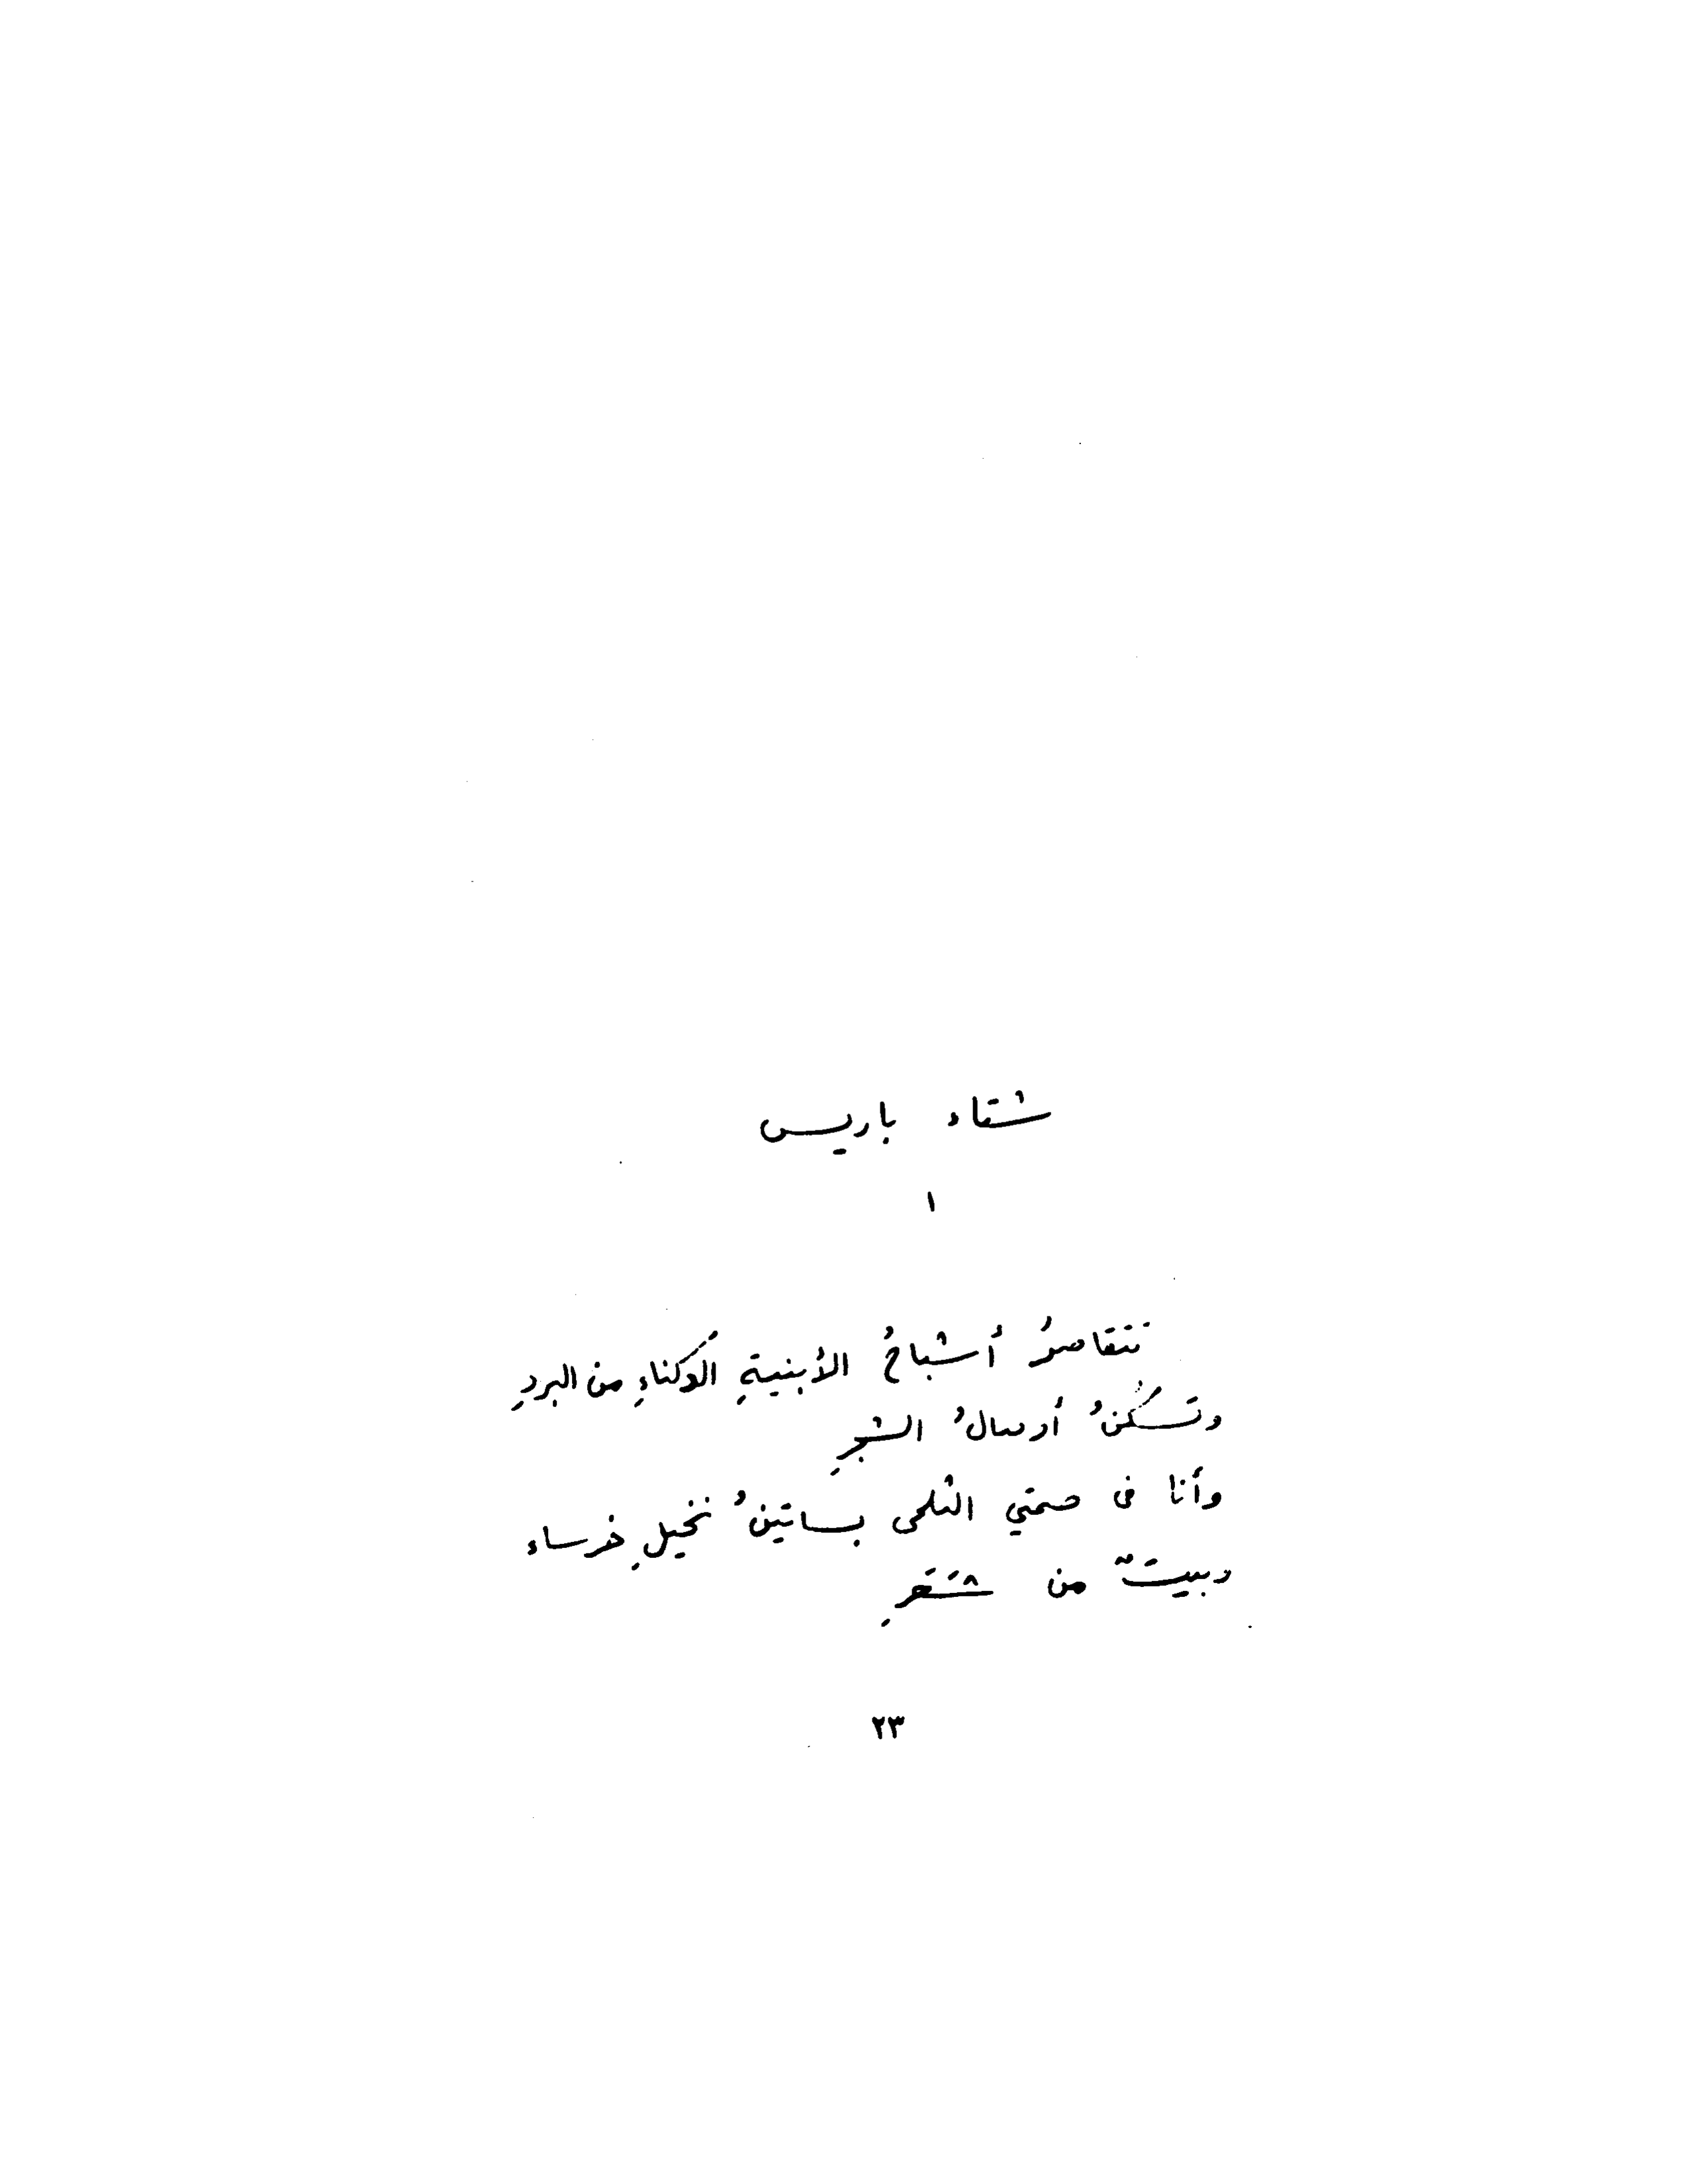 شتاء باريس
١
تتقاصرُ أشباحُ الأبنيةِ الدكناءِ من البردِ
وتسكنُ أوصالُ الشجرِ
وأنا في صمتي الثلجى بساتينُ نخيلٍ خرساء
وبيتٌ من شَعَرِ
٢٣